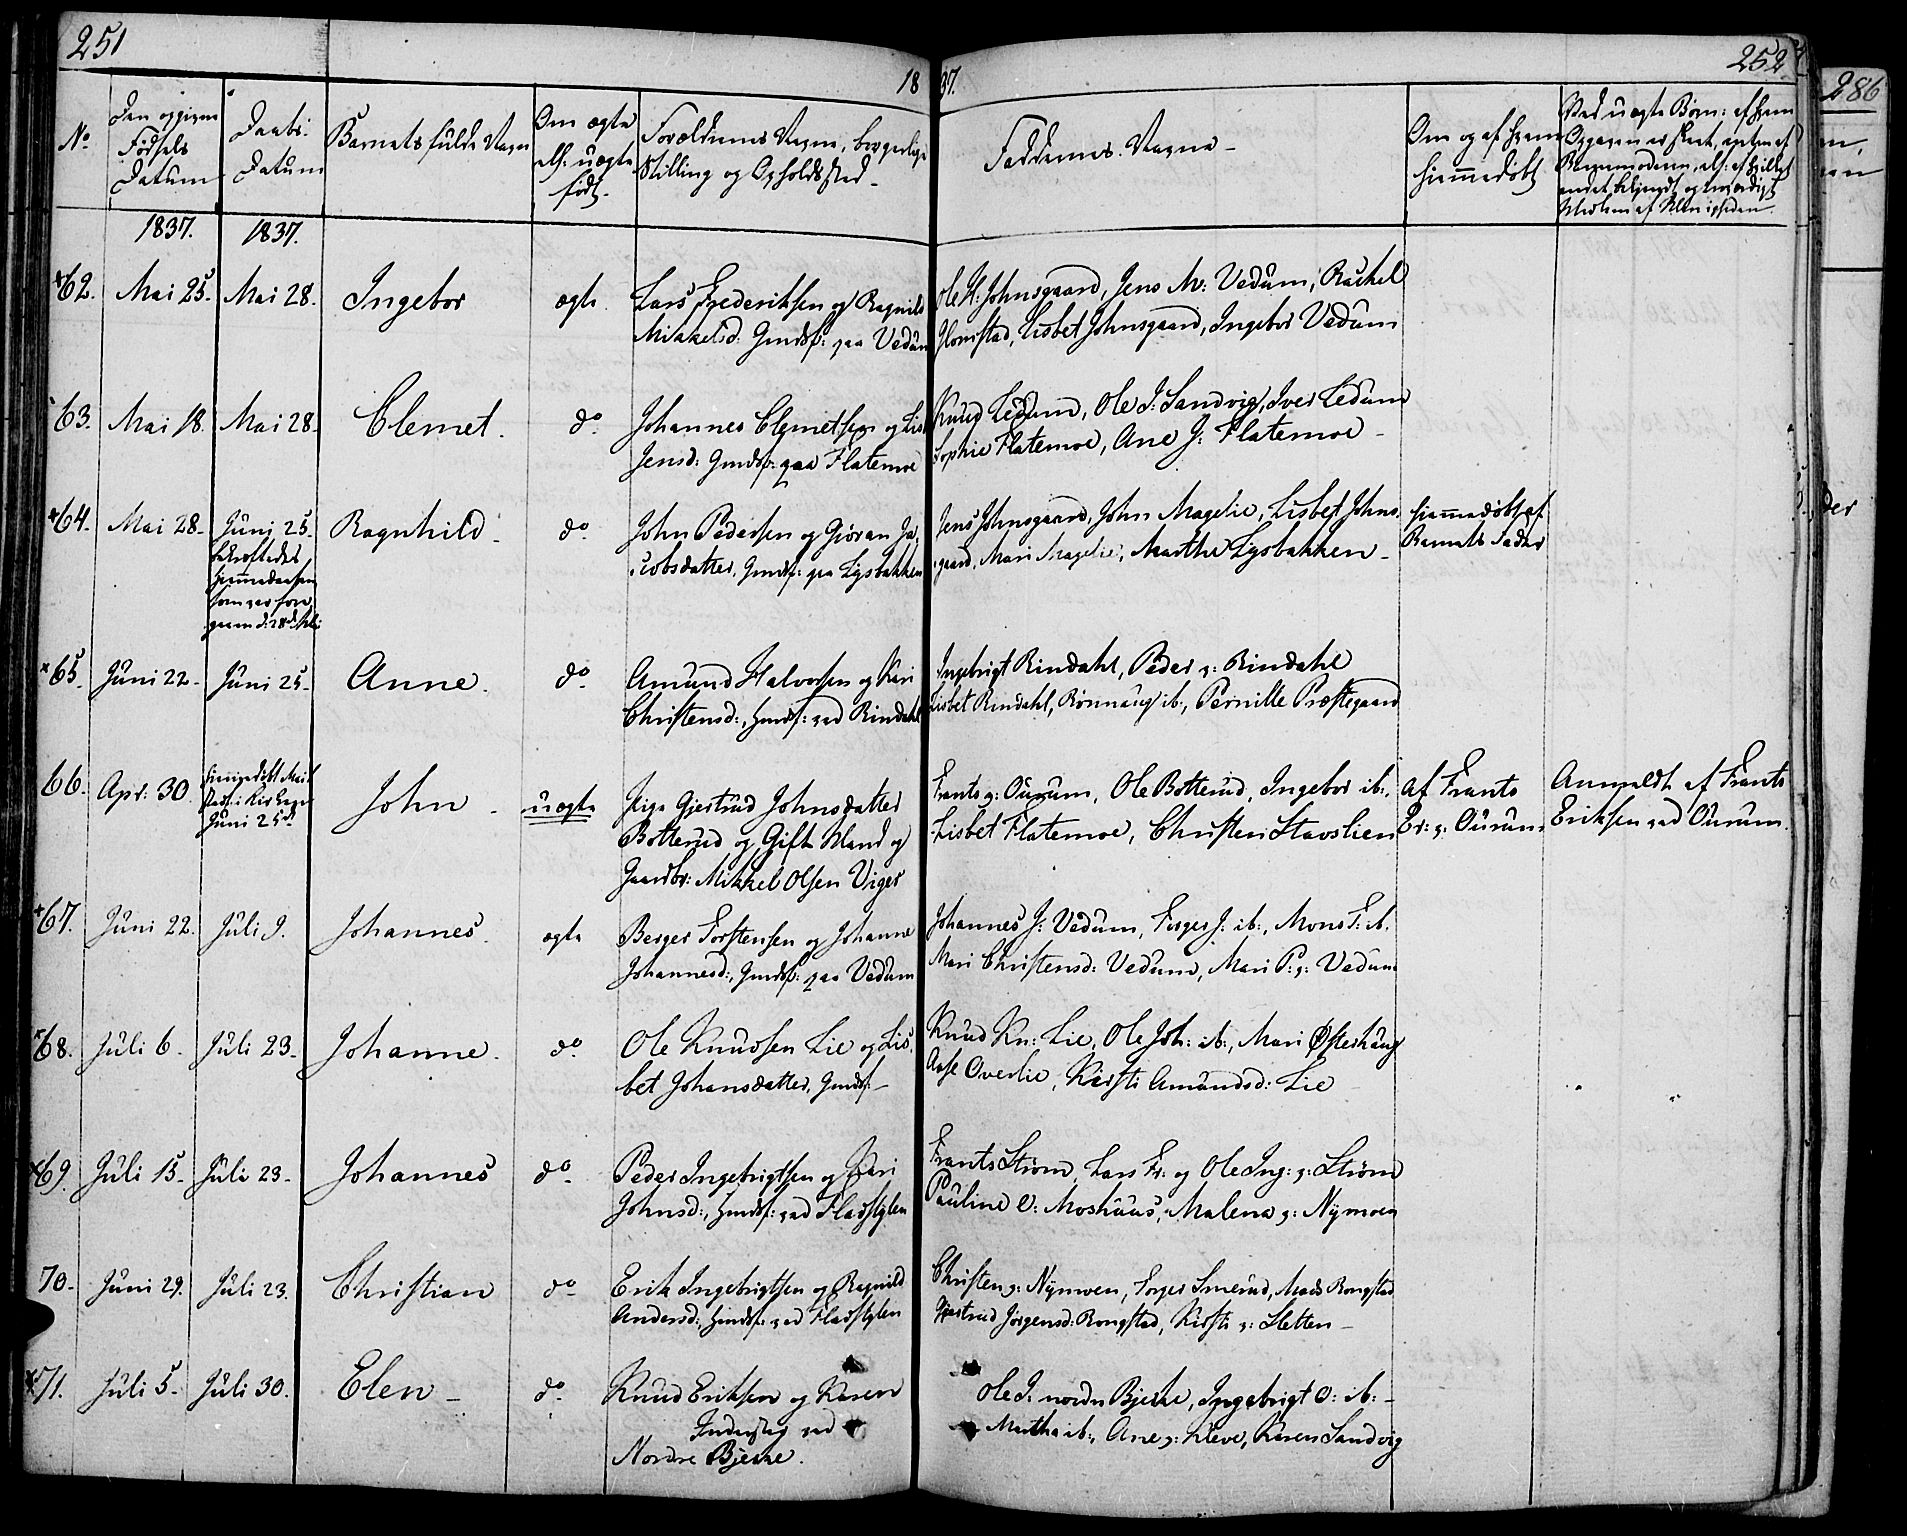 251
18 37.
252
286
No
Den opgivne Fødsels Datum
Daabs: Datum
Barnets fulde Navn
Om ægte elf: uægte født.
Forældrenes Navne, borgerlige Stilling og Opholdssted.
Faddernes Navne
Om og af hvem hjemmedøbt
Ved uægte Børn: af hvem Opgaven er skeet, enten af Barnemoderen, elf: af hvilket andet bekjendt og troværdigt Medlem af Menigheden.
1837. 1837.
62. Mai 25. Mai 28. Ingebor ægte. Lars Frederiksen og Ragnild
Mikkelsd: Gmdsf: paa Vedum
Ole H: Johnsgaard, Jens M: Vedum, Rachel
Glomstad, Lisbet Johnsgaard, Ingebor Vedum
63. Mai 18. Mai 28. Clemet. do. Johannes Clemetsen og Lisb
Jensd: Gmdsf: paa Flatemoe
Knud Ledum, Ole J: Sandvig, Iver Ledum
Sophie Flatemoe, Ane J: Flatemoe
64. Mai 28. Juni 25. Ragnhild. do. John Pedersen og Giøran Ja-
cobsdatter, Gmdsf: paa Lysbakken
bekræftedes
hjemmedaaben
som var fore
gaaen d: 28de Mai
Jens Johnsgaard, John Magelie, Lisbet Johns-
gaard, Mari Magelie, Marthe Lysbakken
hjemmedøbt af
Barnets Fader
65. Juni 22. Juni 25. Anne. do. Amund Halvorsen og Kari
Christensd:, Hmdsf: ved Rindahl
Ingebrigt Rindahl, Peder g: Rindahl
Lisbet Rindahl, Rønnaug ib:, Pernille Præstegaard
66. Apr: 30. hjemmedøbt Mai 1
stadf: i Kirken
Juni 25de
John uægte Pige Gjertrud Johnsdatter
Botterud og Gift Mand og
Gaardbr: Mikkel Olsen Viger
Frants g: Ourum, Ole Botterud, Ingebor ib:,
Lisbet Flatemoe, Christen Stavslien
Af Frants
Er: g: Ourum.
Anmeldt af Frants
Eriksen ved Ourum.
67. Juni 22. Juli 9. Johannes. ægte Berger Torstensen og Johanne
Johannesd:, Gmdsf: paa Vedum
Johannes J: Vedum, Torger J: ib:, Mons T: ib.
Mari Christensd: Vedum, Mari P: g: Vedum
68. Juli 6. Juli 23. Johanne. do. Ole Knudsen Lie og Lis-
bet Johansdatter, Gmdsf:
Knud Kn: Lie, Ole Joh: ib:, Mari Østerhaug
Aase Overlie, Kirsti Amundsd: Lie
69. Juli 15. Juli 23. Johannes do. Peder Ingebrigtsen og Kari
Johnsd:, Hmdsf: ved Fladstylen
Frants Strøm, Lars Fr: og Ole Ing: g: Strøm
Pauline O: Moshuus, Malena g: Nymoen
70. Juni 29. Juli 23. Christian do. Erik Ingebrigtsen og Ragnild
Andersd:, Hmdsf: ved Fladstylen
Christen g: Nymoen, Torger Smerud, Mads Rongstad
Gjertrud Jørgensd: Rongstad, Kirsti g: Sletten
71. Juli 5. Juli 30. Elen do. Knud Eriksen og Karen
Inderster ved
Nordre Bjerke.
Ole J: nordn Bjerke, Ingebrigt O: ib:
Martha ib:, Ane g: Kleve, Karen Sandvig